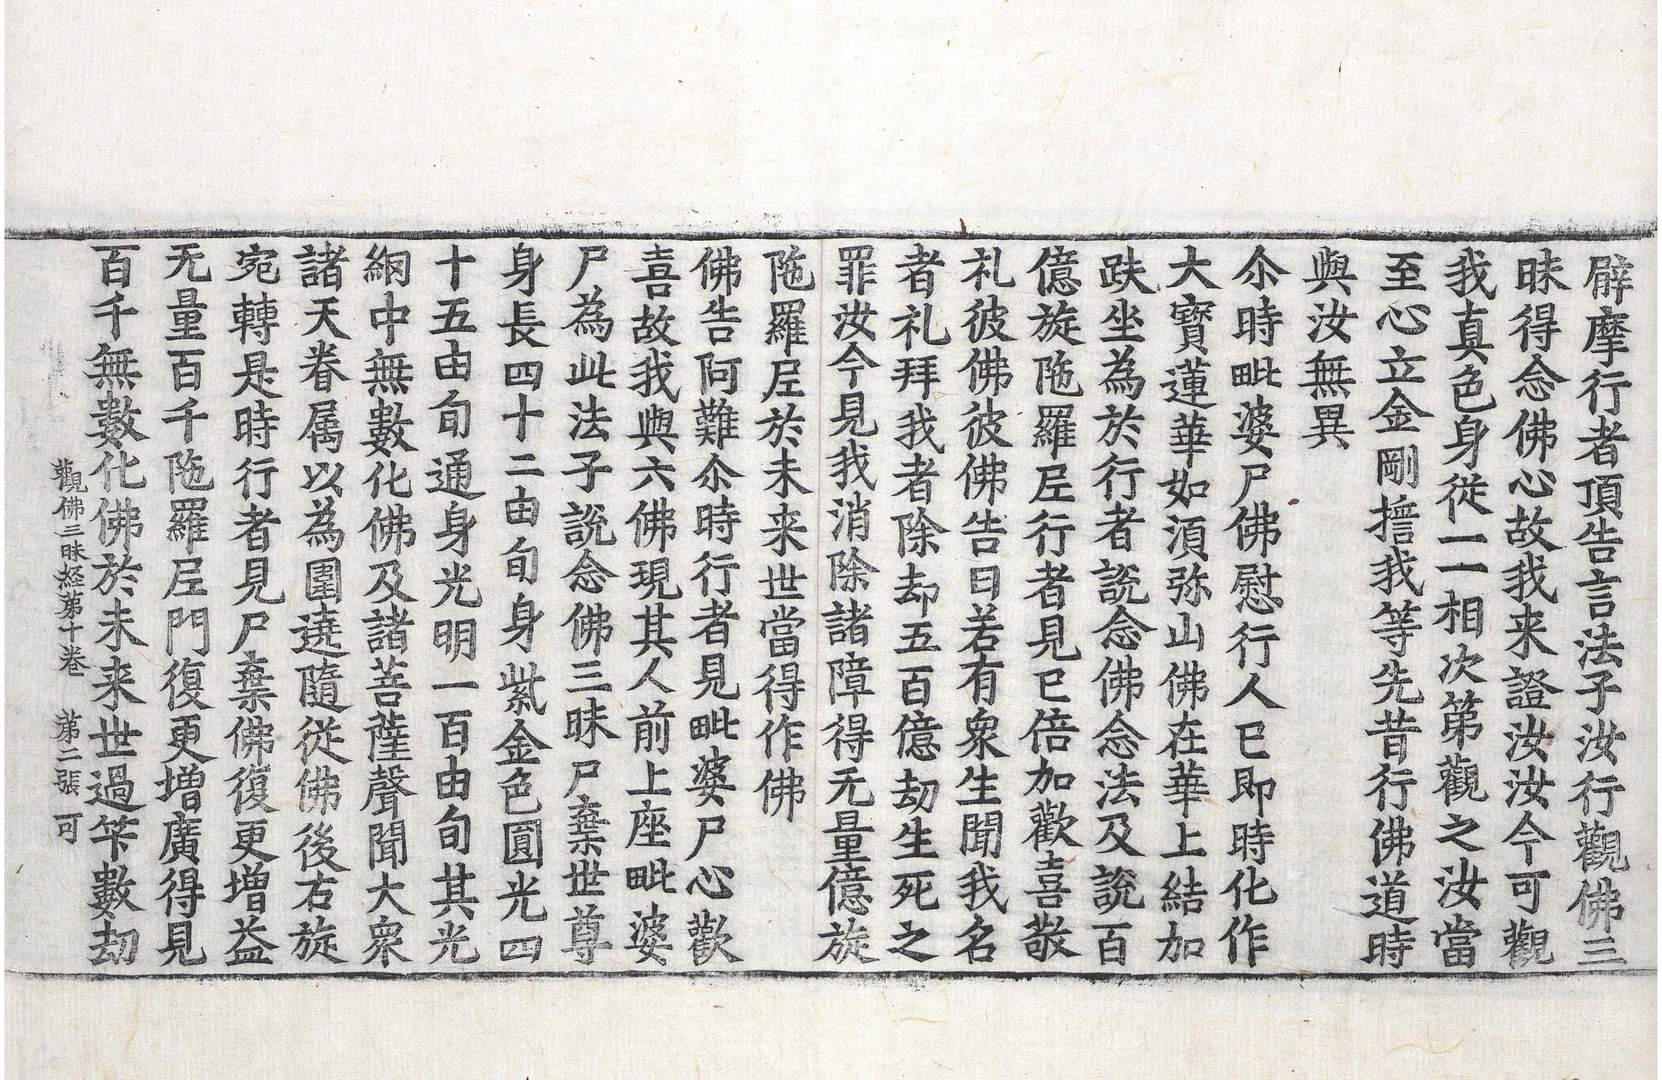 臂摩行者頂告言法子汝行觀佛三
昧得念佛心故我来證汝汝今可觀
我真色身從一一相次第觀之汝當
至心立金剛擔我等先昔行佛道時
與汝無異
尒時毗婆尸佛慰行人已即時化作
大寶蓮華如湏弥山佛在華上結加
趺坐為於行者說念佛念法及說百
億旋陁羅𡰱行者見已倍加歡喜敬
礼彼佛彼佛告曰若有衆生聞我名
者礼拜我者除却五百億劫生死之
罪汝今見我消除諸障得无量億旋
陁羅𡰱於未来世當得作佛
佛告阿難尒時行者見毗婆尸心歡
喜故我與六佛現其人前上座毗婆
尸為此法子說念佛三昧尸棄世尊
身長四十二由旬身紫金色圓光四
十五由旬通身光明一百由旬其光
網中無數化佛及諸菩薩聲聞大衆
諸天眷属以為圍遶隨從佛後右旋
宛轉是時行者見尸棄佛復更增益
无量百千陁羅𡰱門復更增廣得見
百千無數化佛於未来世過筭數劫
觀佛三昧経苐十卷 苐二張 可